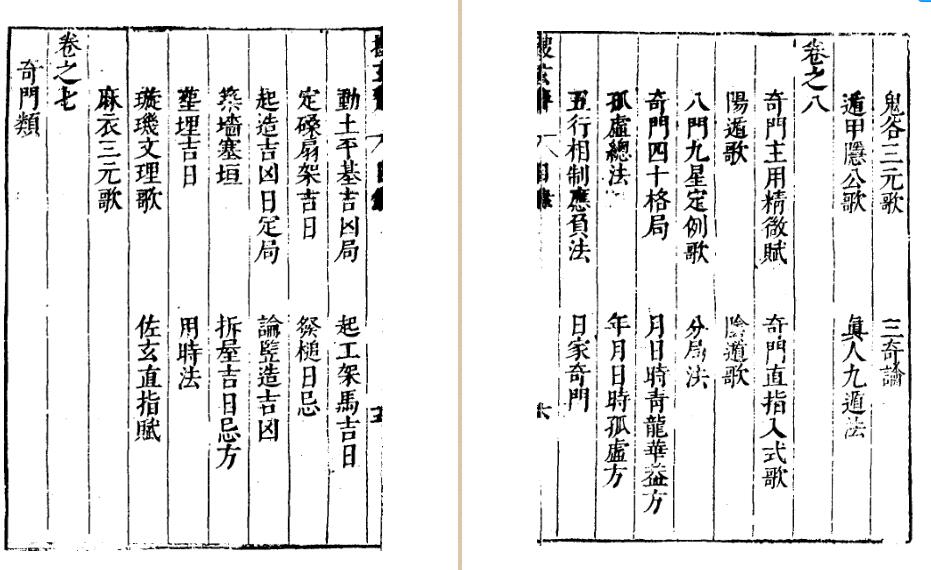 動土平基吉凶局 起工架馬吉日
定磉扇架吉日 祭槌日忌
起造吉凶日定局 論豎造吉凶
築墻塞垣 拆屋吉日忌方
塟埋吉日 用時法
璇璣文理歌 佐玄直指賦
麻衣三元歌
卷之七
奇門類
鬼谷三元歌 三奇論
遁甲隱公歌 眞人九遁法
卷之八
奇門主用精微賦 奇門直指入式歌
陽遁歌 陰遁歌
八門九星定例歌 分局法
奇門四十格局 月日時青龍華蓋方
孤虛總法 年月日時孤虛方
五行相制應負法 日家奇門